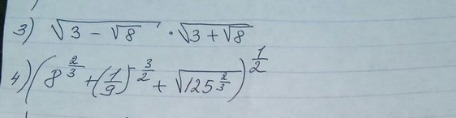 3) √(3 - √8) · √(3 + √8)
4) (8^(2/3) + (1/9)^(-3/2) + √(125^(2/3)))^(1/2)